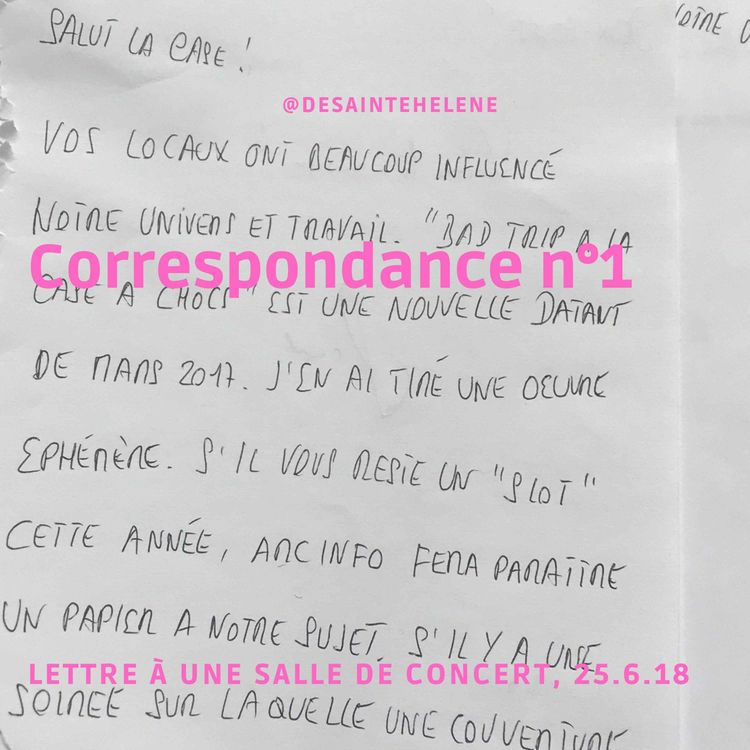 SALUT LA CASE !
NOTRE
@DESAINTEHELENE
VOS LOCAUX ONT BEAUCOUP INFLUENCÉ
NOTRE UNIVERS ET TRAVAIL. "BAD TRIP A LA
Correspondance n°1
CASE A CHOCS" EST UNE NOUVELLE DATANT
DE MARS 2017. J'EN AI TIRÉ UNE OEUVRE
EPHÉMÈRE. S'IL VOUS RESTE UN "SLOT"
CETTE ANNÉE, ARCINFO FERA PARAITRE
UN PAPIER A NOTRE SUJET. S'IL Y A UNE
LETTRE À UNE SALLE DE CONCERT, 25.6.18
SOIREE SUR LAQUELLE UNE COUVERTURE